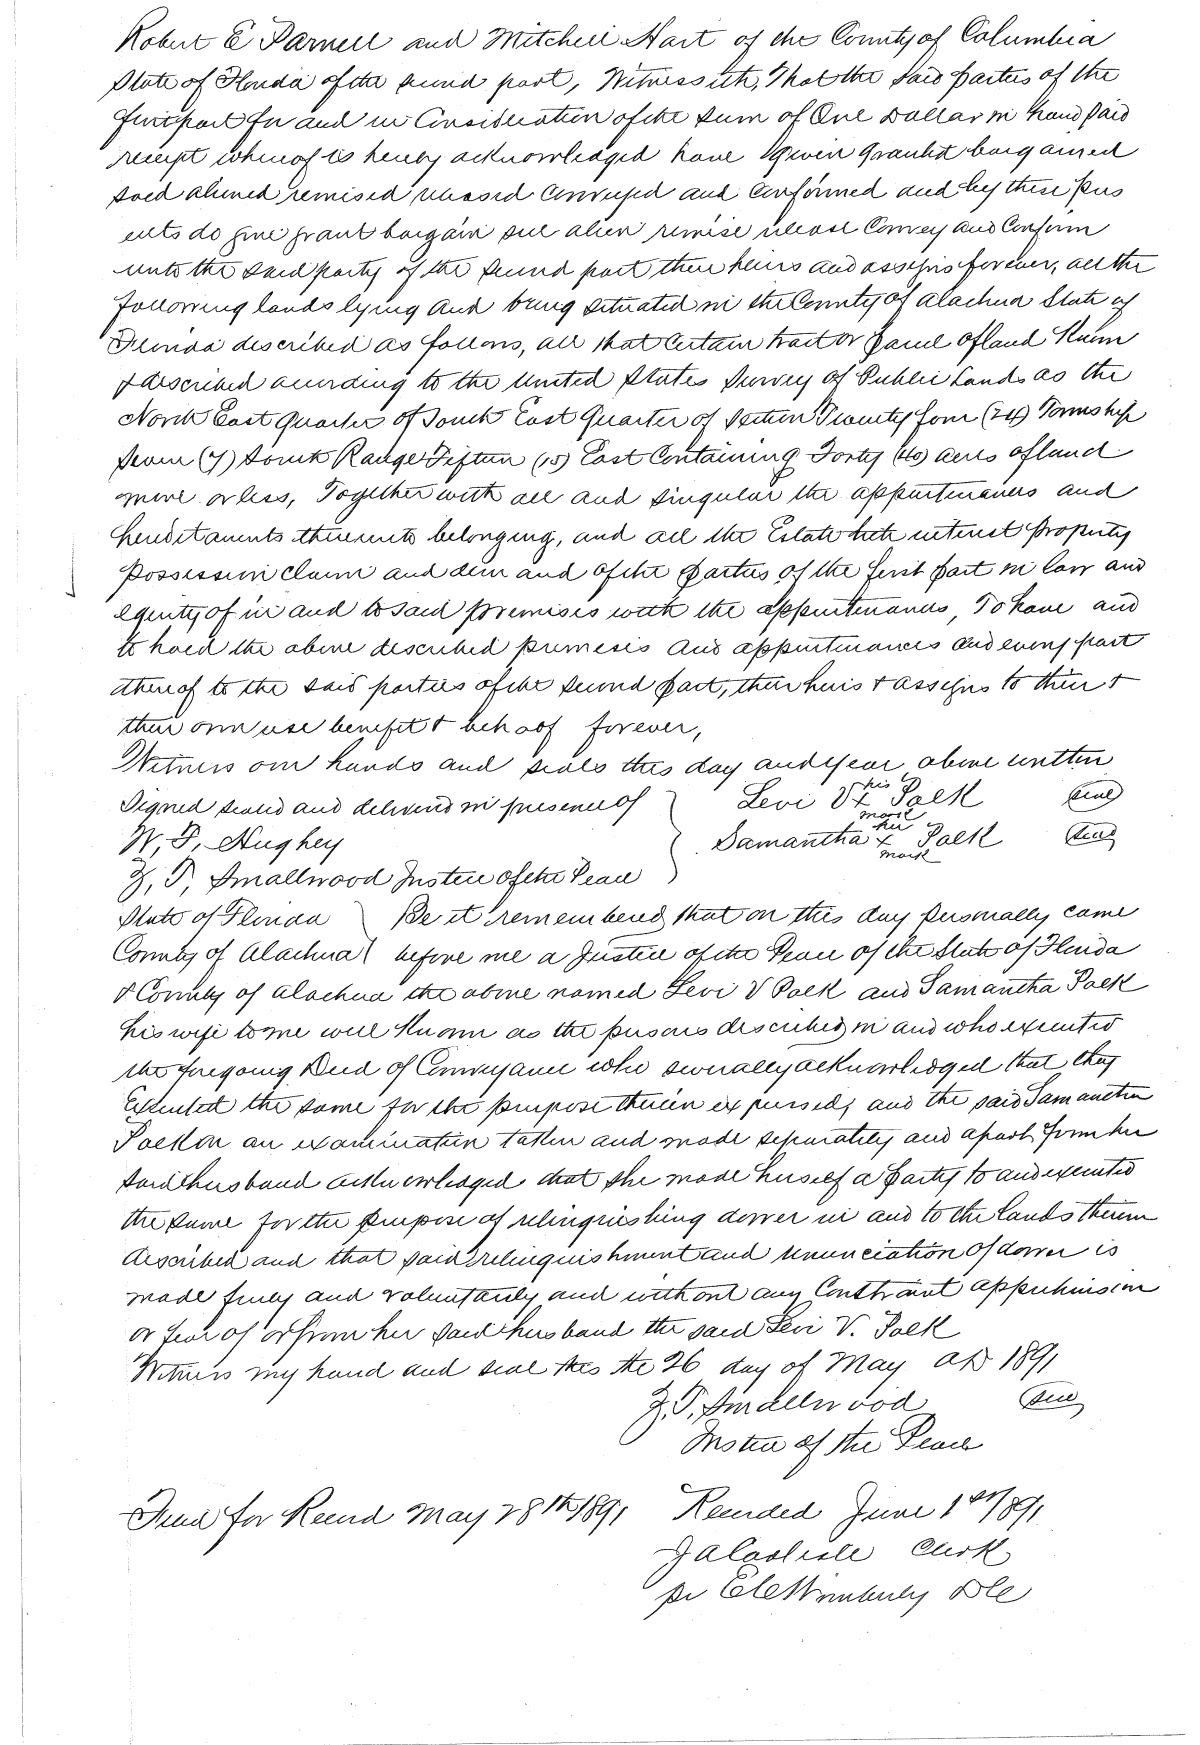 Robert E Parnell and Mitchell Hart of the County of Columbia
State of Florida of the second part, Witnesseth, That the said parties of the
first part for and in Consideration of the sum of One Dollar in hand paid
receipt whereof is hereby acknowledged have given granted bargained
sold aliened remised released conveyed and confirmed and by these pres
ents do give grant bargain sell alien remise release Convey and Confirm
unto the said party of the second part their heirs and assigns forever, all the
following lands lying and being situated in the County of Alachua State of
Florida described as follows, all that certain tract or parcel of land Known
& described according to the United States Survey of Public Lands as the
North East Quarter of South East Quarter of Section Twenty four (24) Township
Seven (7) South Range Fifteen (15) East Containing Forty (40) acres of land
more or less, Together with all and singular the appurtenances and
hereditaments thereunto belonging, and all the Estate title interest property
possession claim and demand of the parties of the first part in law and
equity of in and to said premises with the appurtenances, To have and
to hold the above described premises and appurtenances and every part
thereof to the said parties of the second part, their heirs & assigns to their &
their own use benefit & behoof forever,
Witness our hands and seals this day and year above written
Signed sealed and delivered in presence of Levi V his x mark Polk seal
W. F. Hughey Samantha her x mark Polk seal
Z. T. Smallwood Justice of the Peace
State of Florida Be it remembered that on this day personally came
County of Alachua before me a Justice of the Peace of the State of Florida
& County of Alachua the above named Levi V Polk and Samantha Polk
his wife to me well Known as the persons described in and who executed
the foregoing Deed of Conveyance who severally acknowledged that they
Executed the same for the purpose therein expressed, and the said Samantha
Polk on an examination taken and made separately and apart from her
said husband acknowledged that she made herself a party to and executed
the same for the purpose of relinquishing dower in and to the lands therein
described and that said relinquishment and renunciation of dower is
made freely and voluntarily and without any Constraint apprehension
or fear of or from her said husband the said Levi V. Polk
Witness my hand and seal this the 26 day of May AD 1891
Z. T. Smallwood seal
Justice of the Peace
Filed for Record May 28th 1891 Recorded June 1st/891
J A Carlisle Clerk
pr Wimberly DC